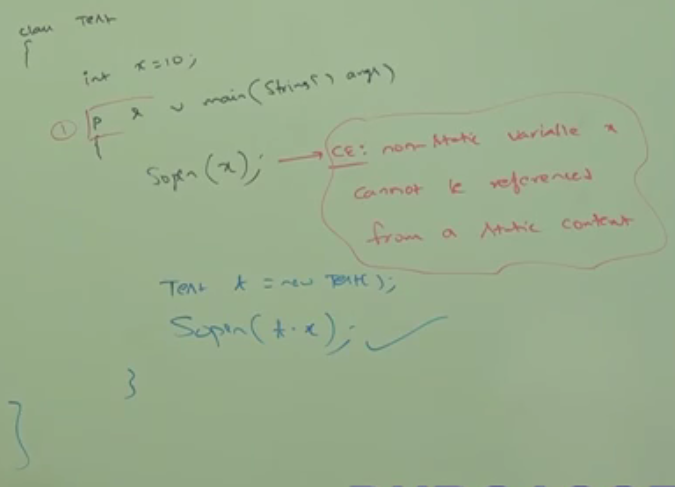 class Test
{
int x=10;
① p s v main(String[] args)
{
Sopln(x); → CE: non-static variable x
cannot be referenced
from a static context
Test t = new Test();
Sopln(t.x); ✓
}
}